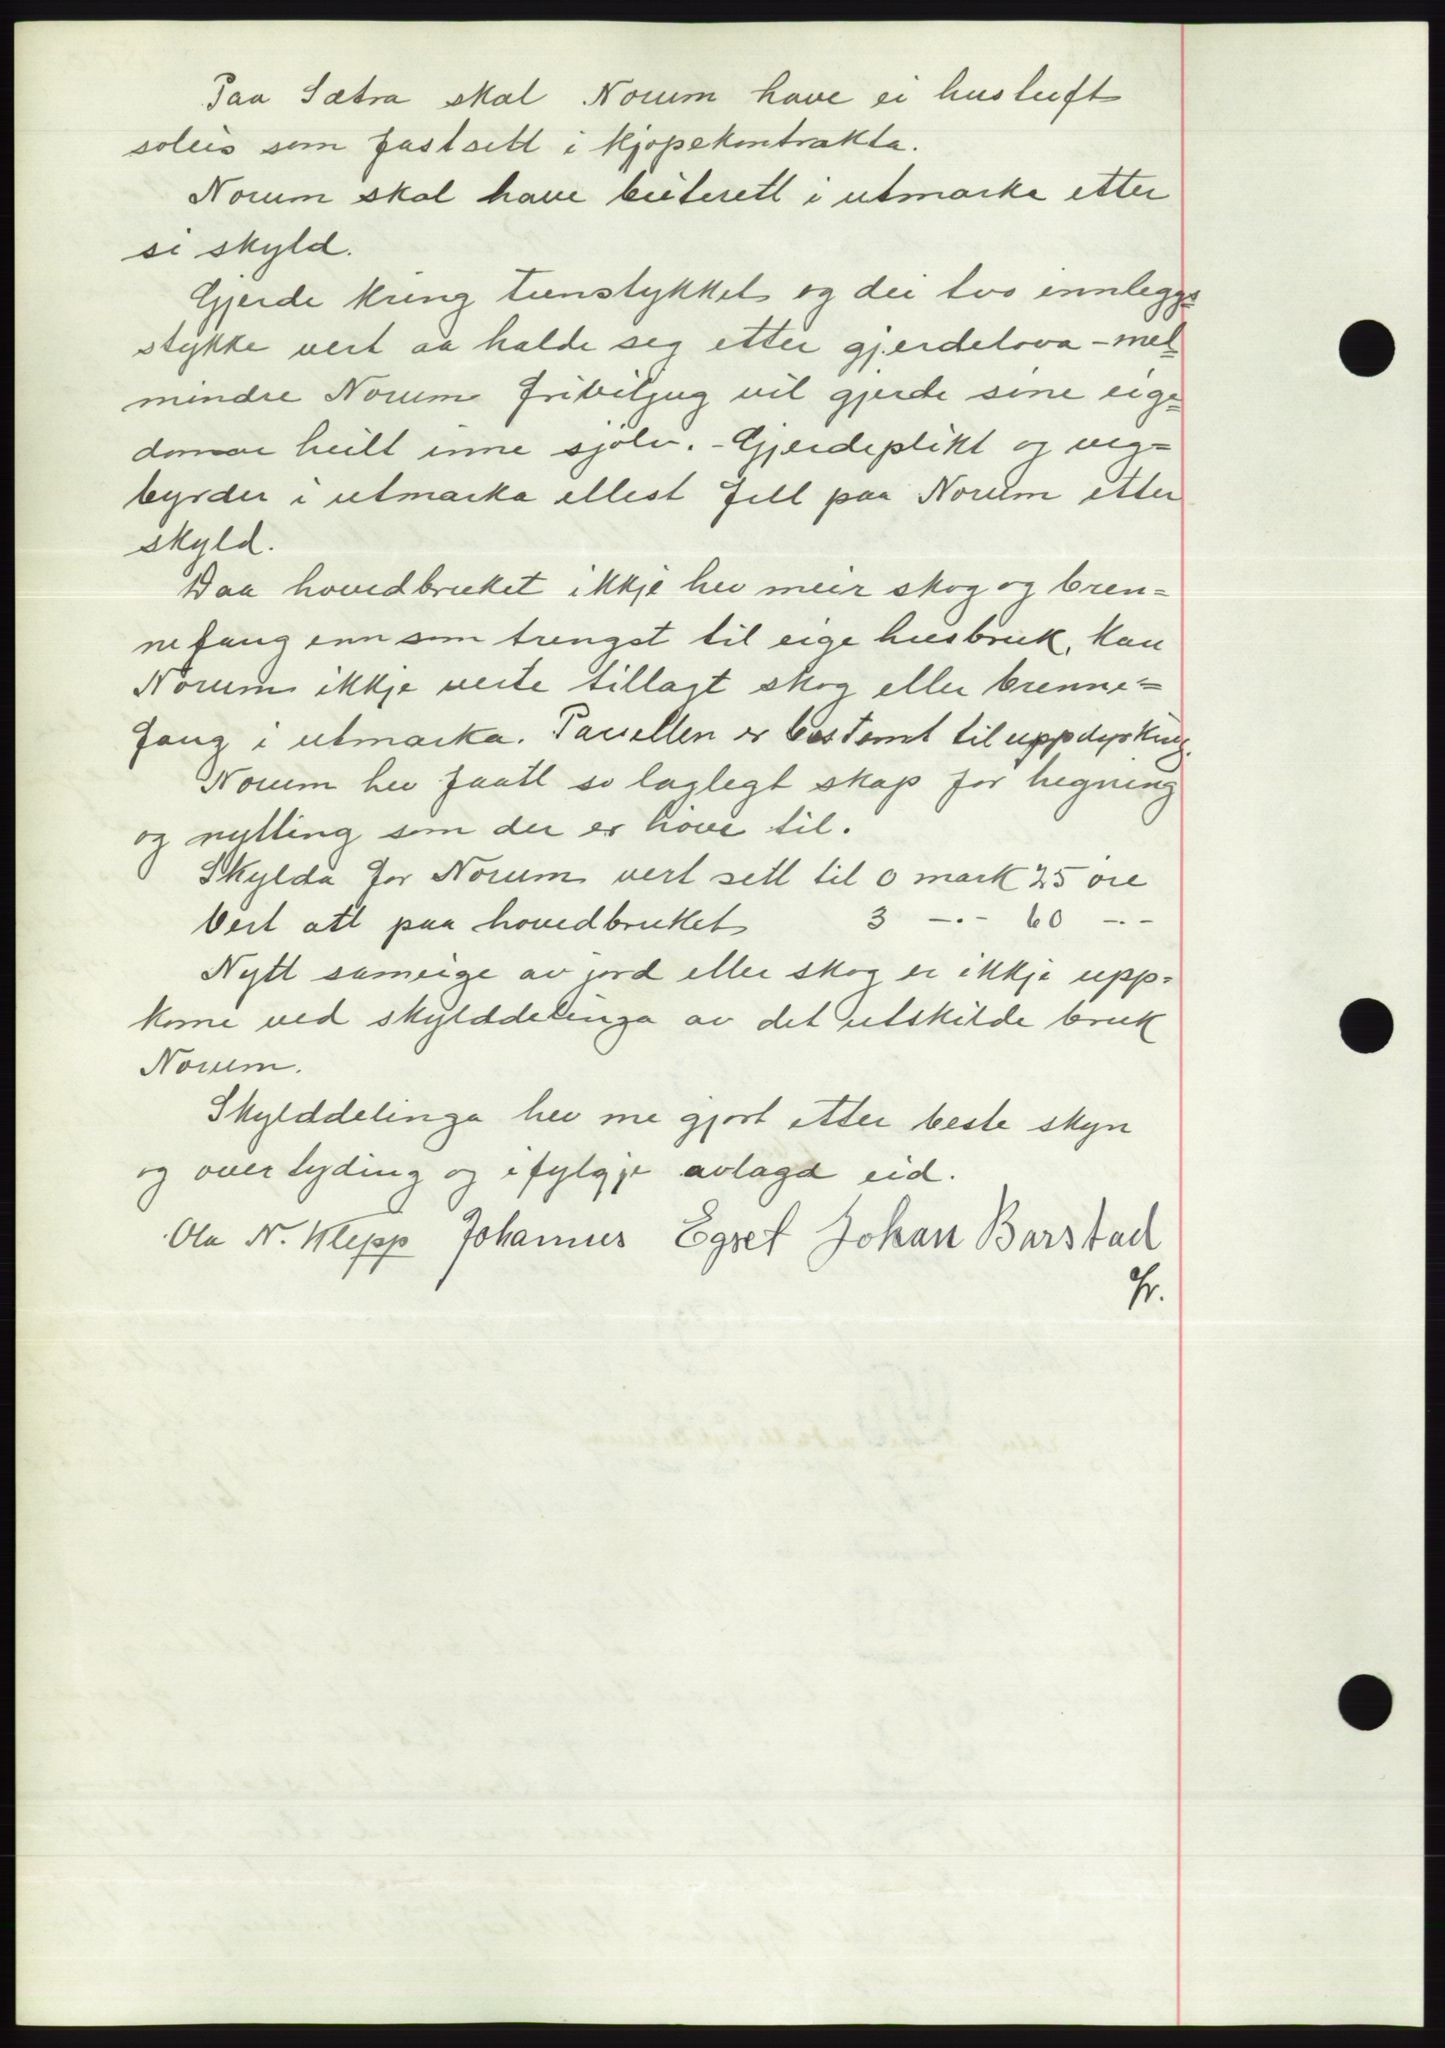 Paa Sætra skal Norum have ei hustuft
soleis som fastsett i kjøpekontrakta.
Norum skal have beiterett i utmarka etter
si skyld.
Gjerde kring tunstykket og dei tvo innleggs=
stykke vert aa halde seg etter gjerdelova – med=
mindre Norum friviljug vil gjerde sine eige=
domar heilt inne sjølv. – Gjerdeplikt og veg=
byrder i utmarka ellest fell paa Norum etter
skyld.
Daa hovedbruket ikkje hev meir skog og bren=
nefang enn som trengst til eige husbruk, kan
Norum ikkje verte tillagt skog eller brenne=
fang i utmarka. Parsellen er bestemt til uppdyrking.
Norum hev faatt so laglegt skap for hegning
og nytting som der er høve til.
Skylda for Norum vert sett til 0 mark 25 øre
Vert att paa hovedbruket 3 –.– 60 –.–
Nytt sameige av jord eller skog er ikkje upp=
kome ved skylddelinga av det utskilde bruk
Norum.
Skylddelinga hev me gjort etter beste skyn
og overtyding og ifylgje avlagd eid.
Ola N. Klepp Johannes Egset Johan Barstad